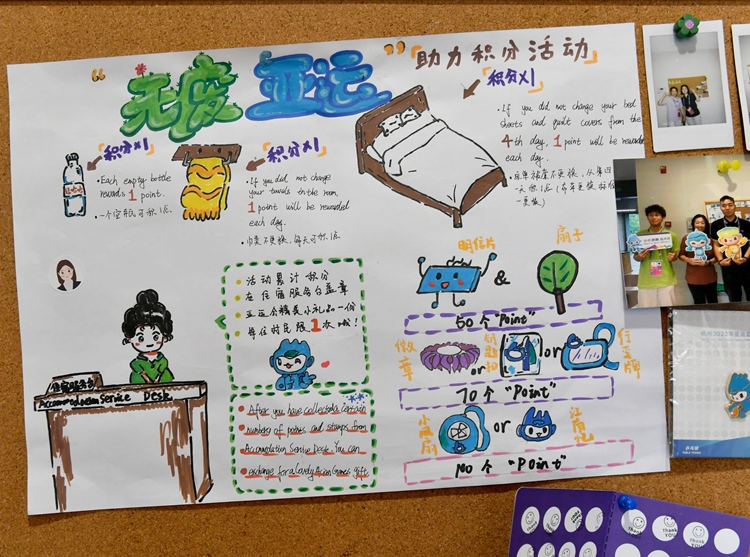 “无废 亚运”
「助力积分活动」
「积分X1」
「积分X1」
「积分X1」
• Each empty bottle
rewards 1 point.
• 一个空瓶可积1点
• If you did not change
your towels in the room,
1 point will be rewarded
each day.
• 巾类不更换，每天可积1点
• If you did not change your bed
sheets and quilt covers from the
4th day, 1 point will be rewarded
each day.
• 床单被套不更换，从第四
天积1点
一更换)
活动累计积分
在住宿服务台盖章
亚运会精美小礼品一份
每位村民限1次哦!
After you have collected a certain
numbers of points and stamps from
Accomodation Service Desk. You can
exchange for a lovely Asian Games gift.
住宿服务台
Accommodation Service Desk.
明信片
&
扇子
50个“Point”
徽章
or
钥匙扣
or
行李牌
70个“Point”
小风扇
or
100个“Point”
thank you